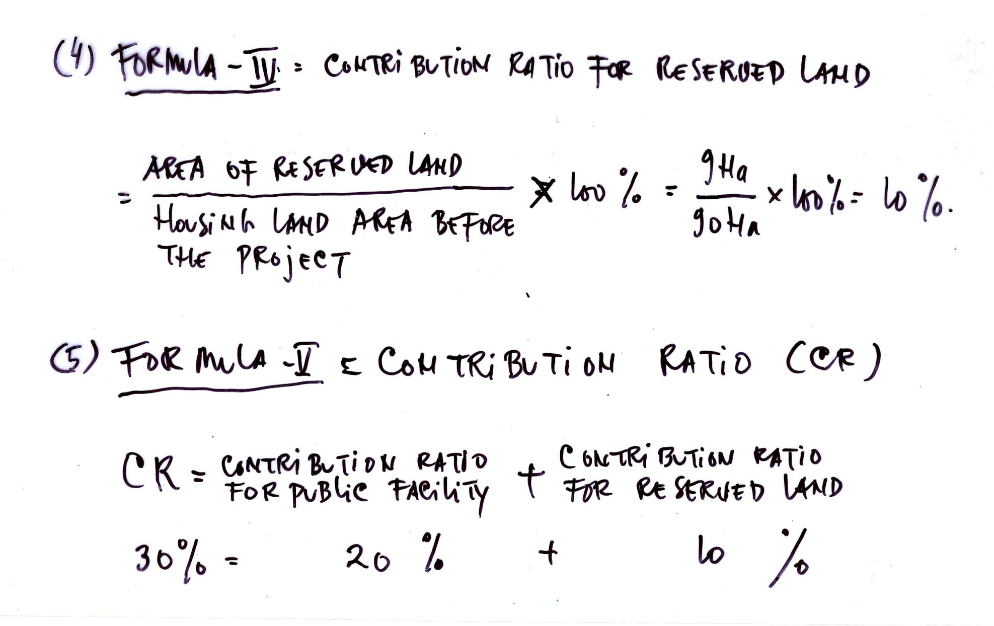 (4) FORMULA - IV = CONTRIBUTION RATIO FOR RESERVED LAND
= AREA OF RESERVED LAND / HOUSING LAND AREA BEFORE THE PROJECT × 100 % = 9 Ha / 90 Ha × 100 % = 10 %.
(5) FORMULA - V = CONTRIBUTION RATIO (CR)
CR = CONTRIBUTION RATIO FOR PUBLIC FACILITY + CONTRIBUTION RATIO FOR RESERVED LAND
30 % = 20 % + 10 %